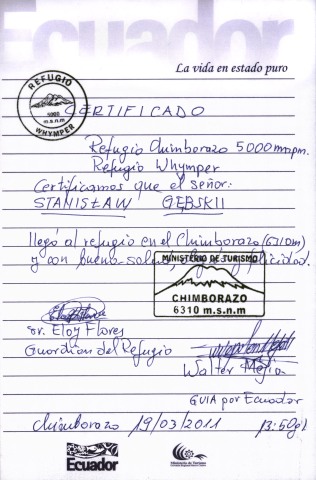 Ecuador
La vida en estado puro
REFUGIO
5000
m.s.n.m
WHYMPER
CERTIFICADO
Refugio Chimborazo 5.000 msnm.
Refugio Whymper
Certificamos que el señor:
STANISŁAW GĘBSKII
llegó al refugio en el Chimborazo (6310m)
y con buena salud, y felicidad.
MINISTERIO DE TURISMO
CHIMBORAZO
6310 m.s.n.m
Sr. Eloy Flores
Guardian del Refugio
Walter Mejia
GUIA por Ecuador
Chimborazo 19/03/2011
Ecuador
Ministerio de Turismo